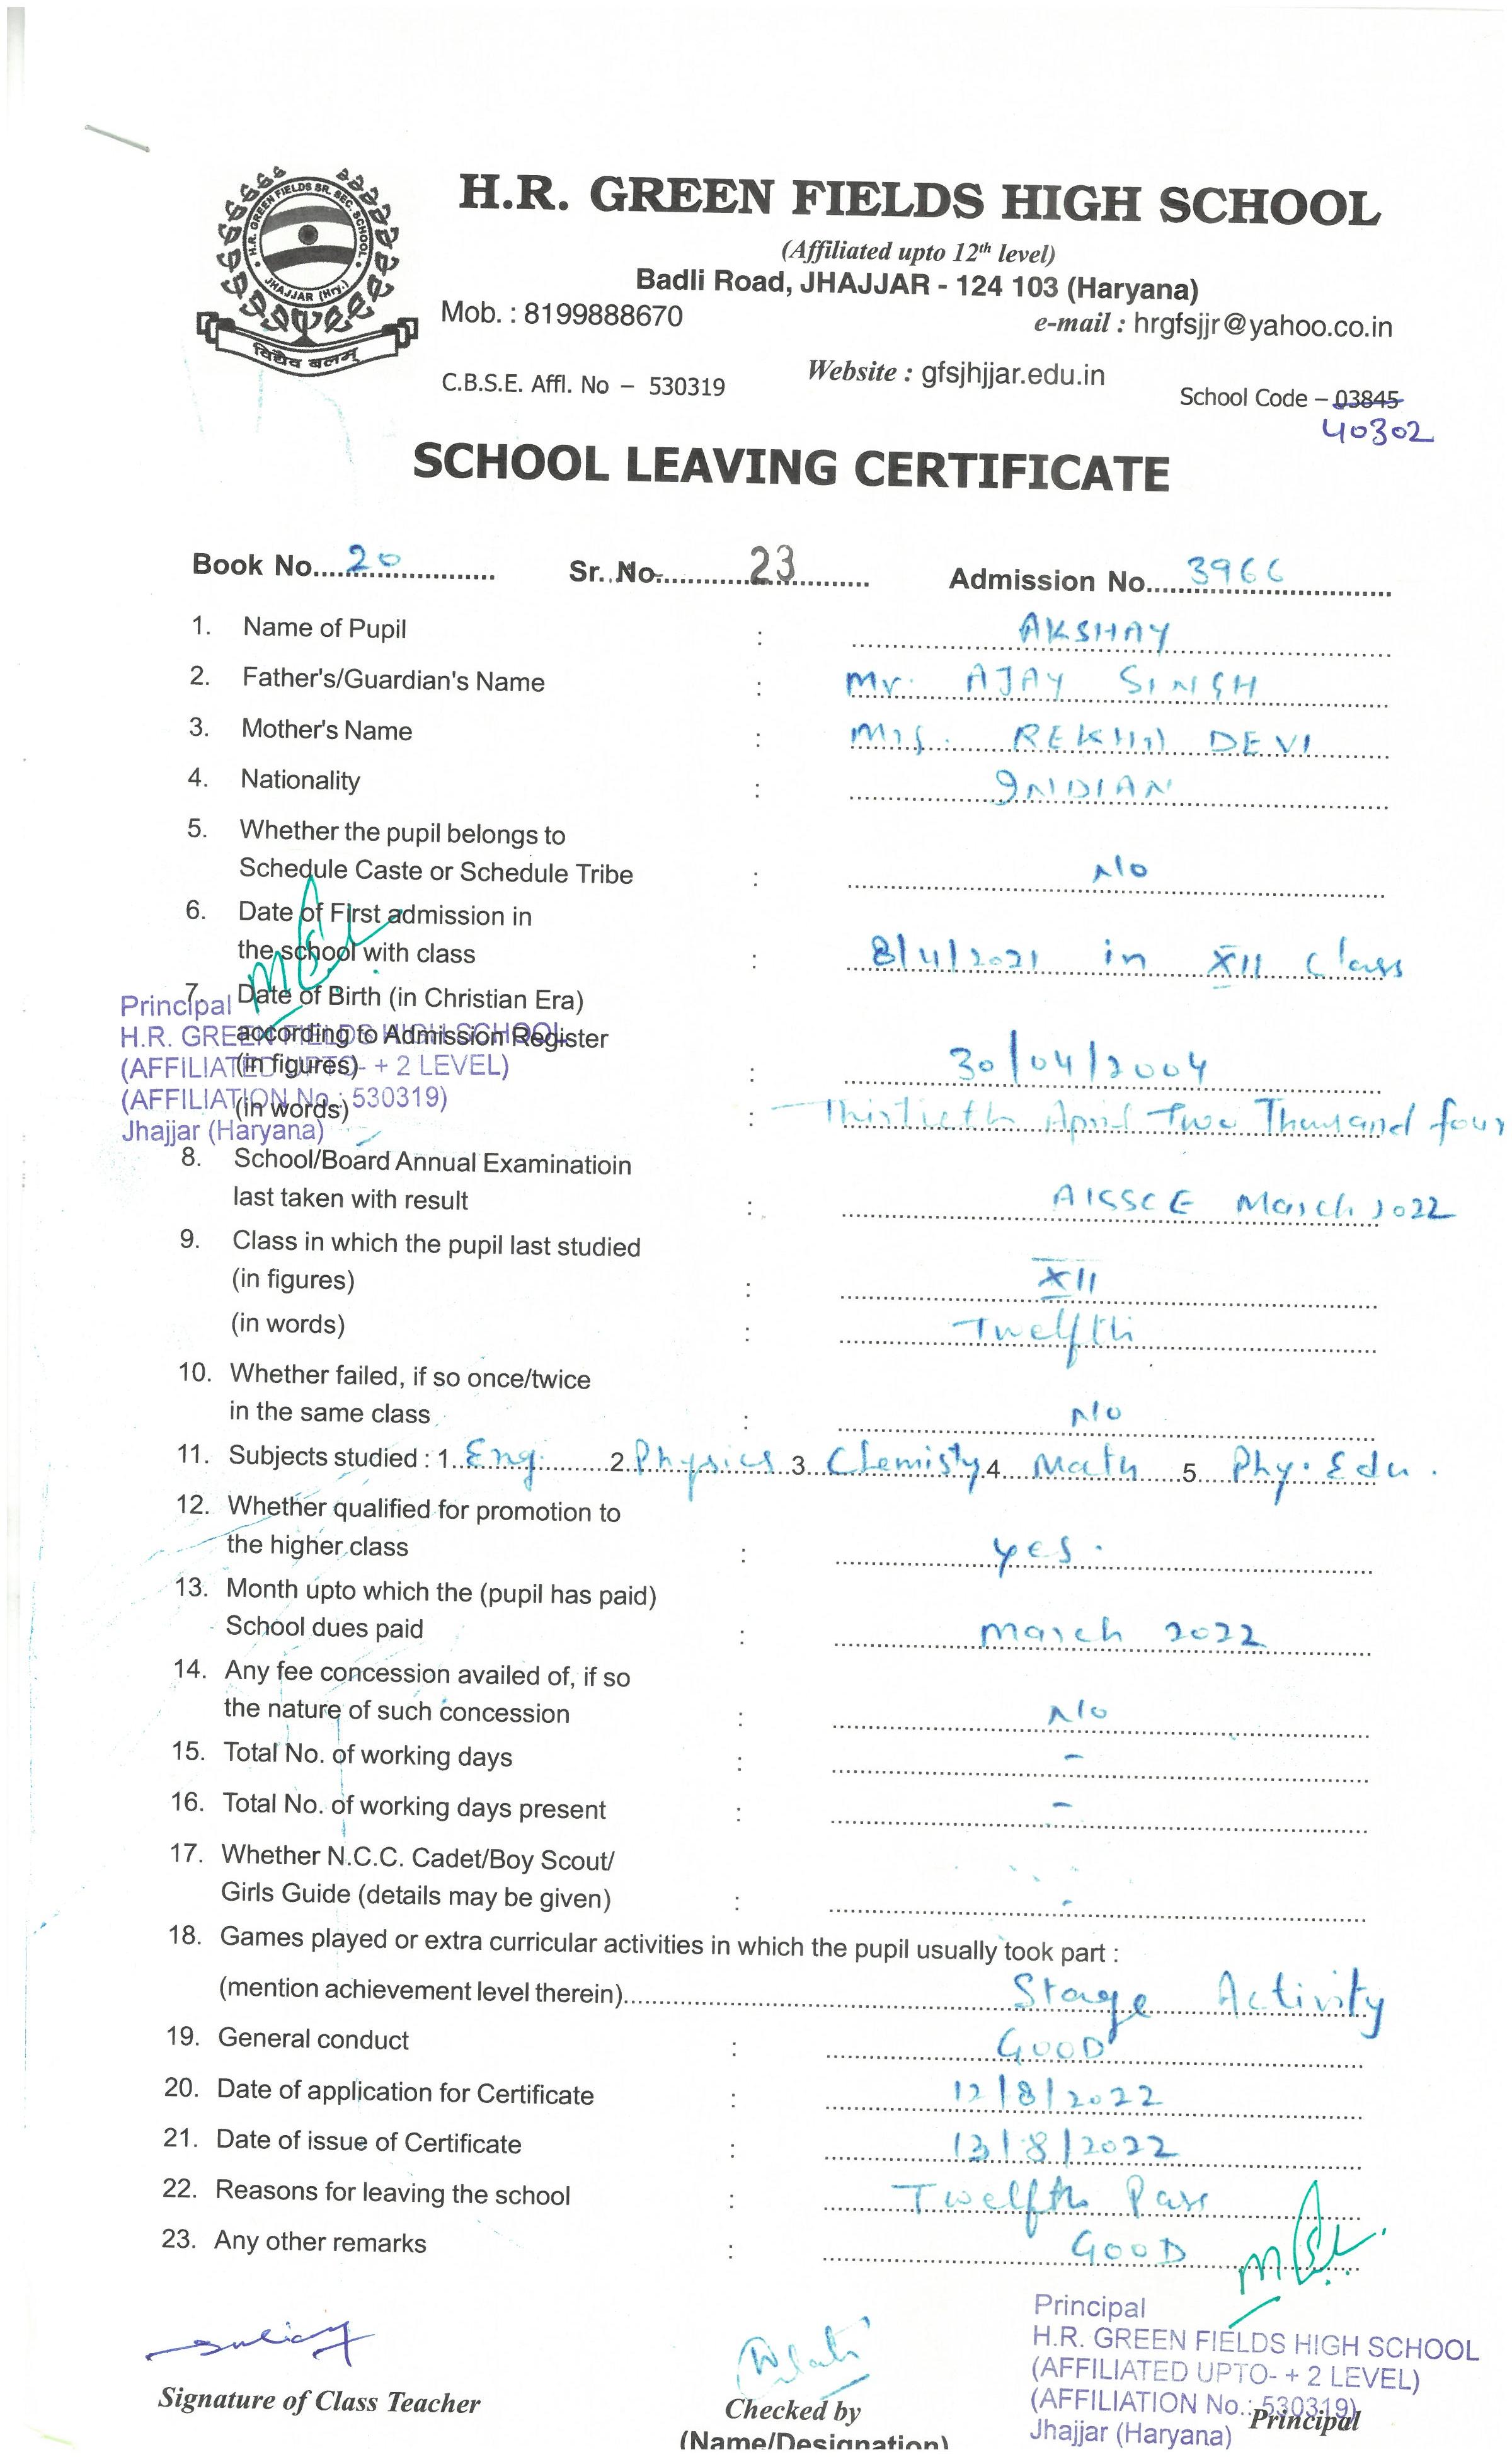 H.R. GREEN FIELDS SR. SEC. SCHOOL
JHAJJAR (Hry.)
विद्यैव बलम्
H.R. GREEN FIELDS HIGH SCHOOL
(Affiliated upto 12th level)
Badli Road, JHAJJAR - 124 103 (Haryana)
Mob. : 8199888670 e-mail : hrgfsjjr@yahoo.co.in
C.B.S.E. Affl. No – 530319 Website : gfsjhjjar.edu.in School Code – 03845
40302
SCHOOL LEAVING CERTIFICATE
Book No. 20 Sr. No. 23 Admission No. 3966
1. Name of Pupil : AKSHAY
2. Father's/Guardian's Name : Mr. AJAY SINGH
3. Mother's Name : Mrs. REKHA DEVI
4. Nationality : INDIAN
5. Whether the pupil belongs to
Schedule Caste or Schedule Tribe : No
6. Date of First admission in
the school with class : 8/4/2021 in XII Class
7. Date of Birth (in Christian Era)
according to Admission Register
(in figures) : 30/04/2004
(in words) : Thirtieth April Two Thousand four
Principal
H.R. GREEN FIELDS HIGH SCHOOL
(AFFILIATED UPTO- + 2 LEVEL)
(AFFILIATION No.: 530319)
Jhajjar (Haryana)
8. School/Board Annual Examinatioin
last taken with result : AISSCE March 2022
9. Class in which the pupil last studied
(in figures) : XII
(in words) : Twelfth
10. Whether failed, if so once/twice
in the same class : No
11. Subjects studied : 1. Eng. 2. Physics 3. Chemisty 4. Math 5. Phy. Edu.
12. Whether qualified for promotion to
the higher class : yes.
13. Month upto which the (pupil has paid)
School dues paid : March 2022
14. Any fee concession availed of, if so
the nature of such concession : No
15. Total No. of working days : -
16. Total No. of working days present : -
17. Whether N.C.C. Cadet/Boy Scout/
Girls Guide (details may be given) : -
18. Games played or extra curricular activities in which the pupil usually took part :
(mention achievement level therein) Stage Activity
19. General conduct : GOOD
20. Date of application for Certificate : 12/8/2022
21. Date of issue of Certificate : 13/8/2022
22. Reasons for leaving the school : Twelfth Pass
23. Any other remarks : GOOD
Principal
H.R. GREEN FIELDS HIGH SCHOOL
(AFFILIATED UPTO- + 2 LEVEL)
(AFFILIATION No.: 530319)
Jhajjar (Haryana)
Signature of Class Teacher Checked by Principal
(Name/Designation)